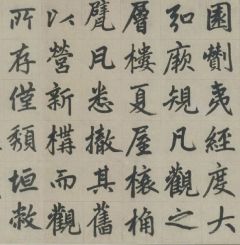 園劗夷經度大
弘厥規凡觀之
層樓夏屋榱桷
甓凡悉撤其舊
以營新構而觀
所存僅頹垣敝